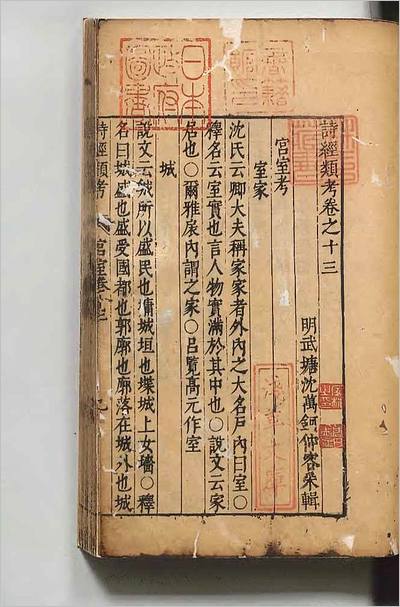 詩經類考卷之十三
明武塘沈萬鈳仲容采輯
宮室考
室家
沈氏云卿大夫稱家家者外內之大名戶內曰室○
釋名云室實也言人物實滿於其中也○說文云家
居也○爾雅扆內謂之家○呂覽高元作室
城
說文云城所以盛民也墉城垣也堞城上女牆○釋
名曰城盛也盛受國都也郭廓也廓落在城外也城
詩經類考
宮室卷
日本
政府
圖書